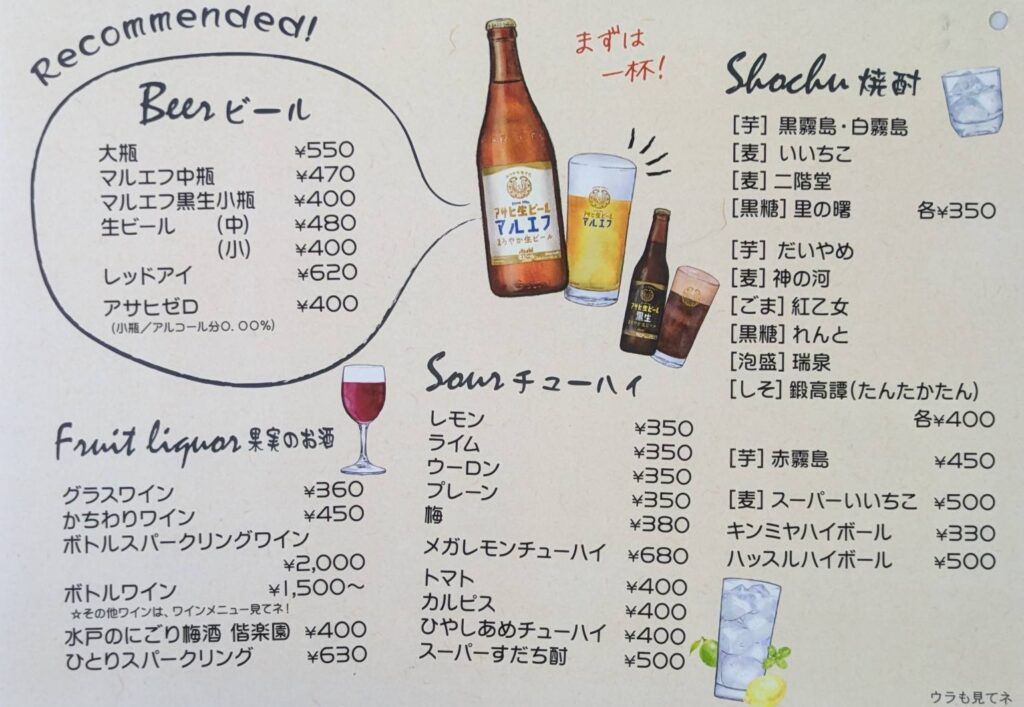 Recommended!
Beer ビール
大瓶 ¥550
マルエフ中瓶 ¥470
マルエフ黒生小瓶 ¥400
生ビール (中) ¥480
(小) ¥400
レッドアイ ¥620
アサヒゼロ ¥400
(小瓶／アルコール分0.00%)
まずは
一杯!
アサヒ生ビール
マルエフ
まろやか生ビール
Asahi
アサヒ生ビール
マルエフ
アサヒ生ビール
黒生
Fruit liquor 果実のお酒
グラスワイン ¥360
かちわりワイン ¥450
ボトルスパークリングワイン
¥2,000
ボトルワイン ¥1,500～
☆その他ワインは、ワインメニュー見てネ!
水戸のにごり梅酒 偕楽園 ¥400
ひとりスパークリング ¥630
Sour チューハイ
レモン ¥350
ライム ¥350
ウーロン ¥350
プレーン ¥350
梅 ¥380
メガレモンチューハイ ¥680
トマト ¥400
カルピス ¥400
ひやしあめチューハイ ¥400
スーパーすだち酎 ¥500
Shochu 焼酎
[芋] 黒霧島・白霧島
[麦] いいちこ
[麦] 二階堂
[黒糖] 里の曙 各¥350
[芋] だいやめ
[麦] 神の河
[ごま] 紅乙女
[黒糖] れんと
[泡盛] 瑞泉
[しそ] 鍛高譚(たんたかたん)
各¥400
[芋] 赤霧島 ¥450
[麦] スーパーいいちこ ¥500
キンミヤハイボール ¥330
ハッスルハイボール ¥500
ウラも見てネ